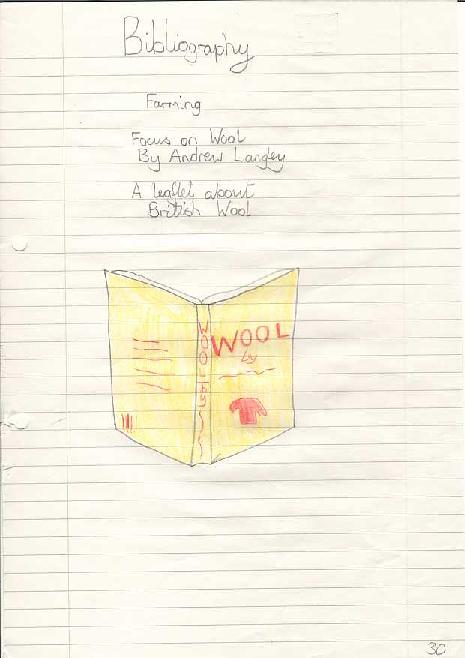 Bibliography
Farming
Focus on Wool
By Andrew Langley
A leaflet about
British Wool
WOOL
WOOL
by
30